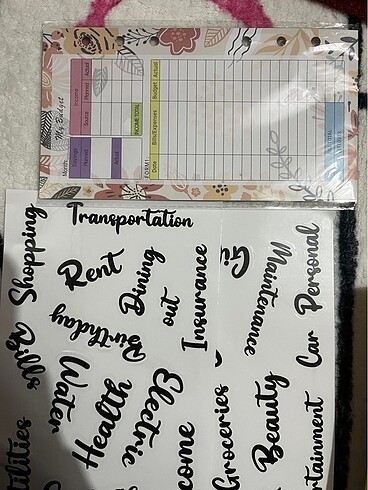 My Budget
Month:
Income
Source Planned Actual
INCOME TOTAL
Savings
Planned
Actual
Bills/Expenses
Date
Budget Actual
Transportation
Shopping
Rent
Dining
out
Insurance
Maintenance
Car
Personal
Birthday
Bills
Water
Health
Electric
Groceries
Beauty